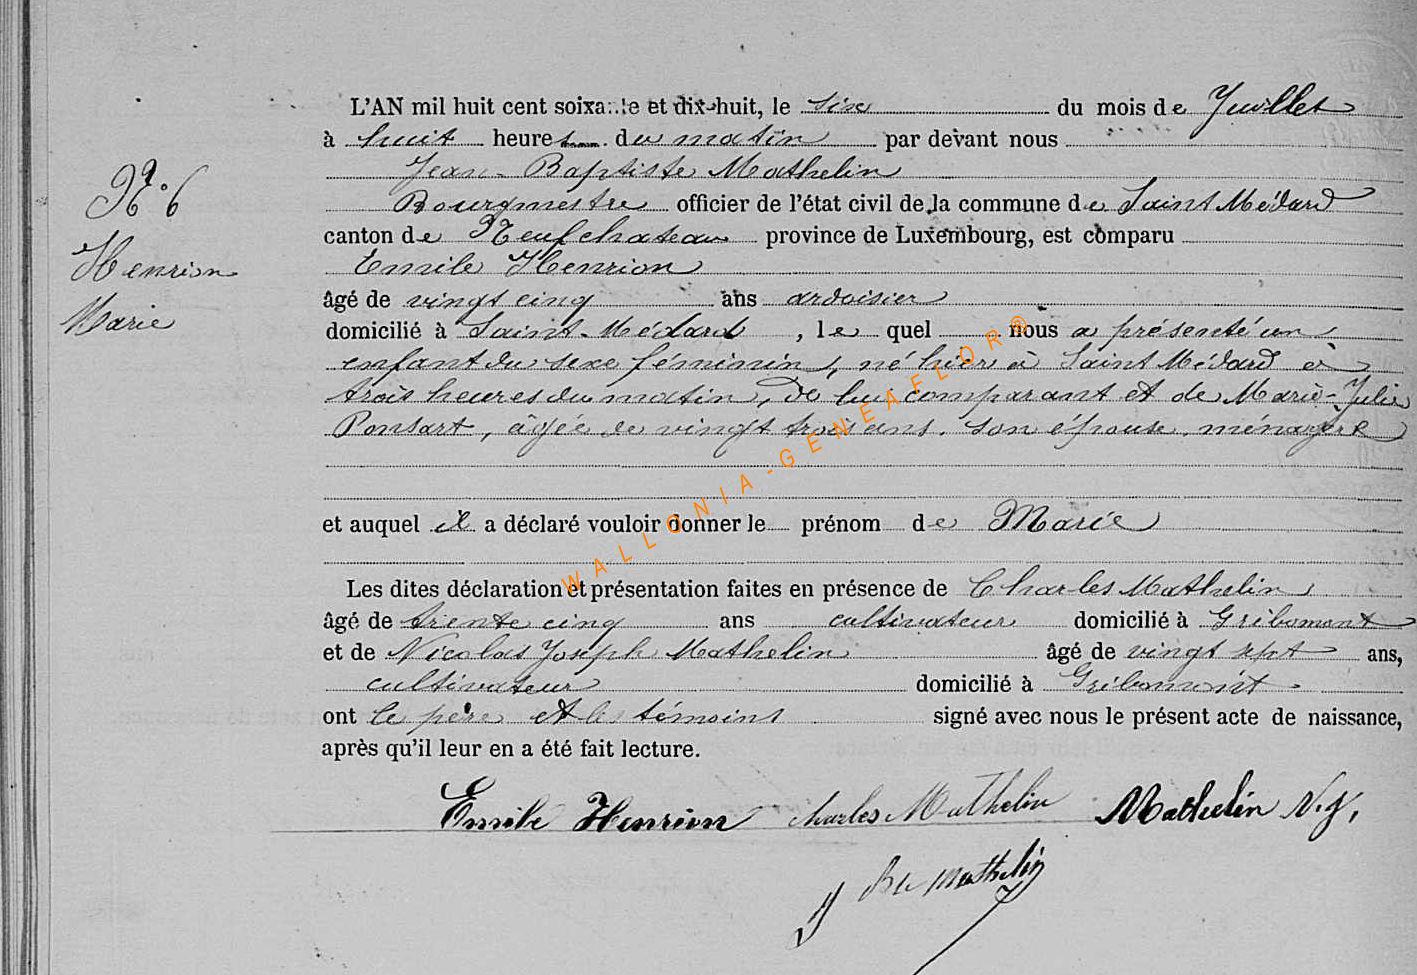 L'AN mil huit cent soixante et dix-huit, le six du mois de Juillet
à huit heures du matin par devant nous
Jean-Baptiste Mathelin
Bourgmestre officier de l'état civil de la commune de Saint Médard
canton de Neufchateau province de Luxembourg, est comparu
Emile Henrion
âgé de vingt cinq ans ardoisier
domicilié à Saint-Médard, le quel nous a présenté un
enfant du sexe féminin, né hier à Saint Médard à
trois heures du matin, de lui comparant et de Marie-Julie
Ponsart, âgée de vingt trois ans, son épouse, ménagère
et auquel il a déclaré vouloir donner le prénom de Marie
Les dites déclaration et présentation faites en présence de Charles Mathelin
âgé de trente cinq ans cultivateur domicilié à Gribomont
et de Nicolas Joseph Mathelin âgé de vingt sept ans,
cultivateur domicilié à Gribomont
ont le père et les témoins signé avec nous le présent acte de naissance,
après qu'il leur en a été fait lecture.
N° 6
Henrion
Marie
Emile Henrion Charles Mathelin Mathelin N. J.
J Bte Mathelin
WALLONIA-GENEAFLOR®